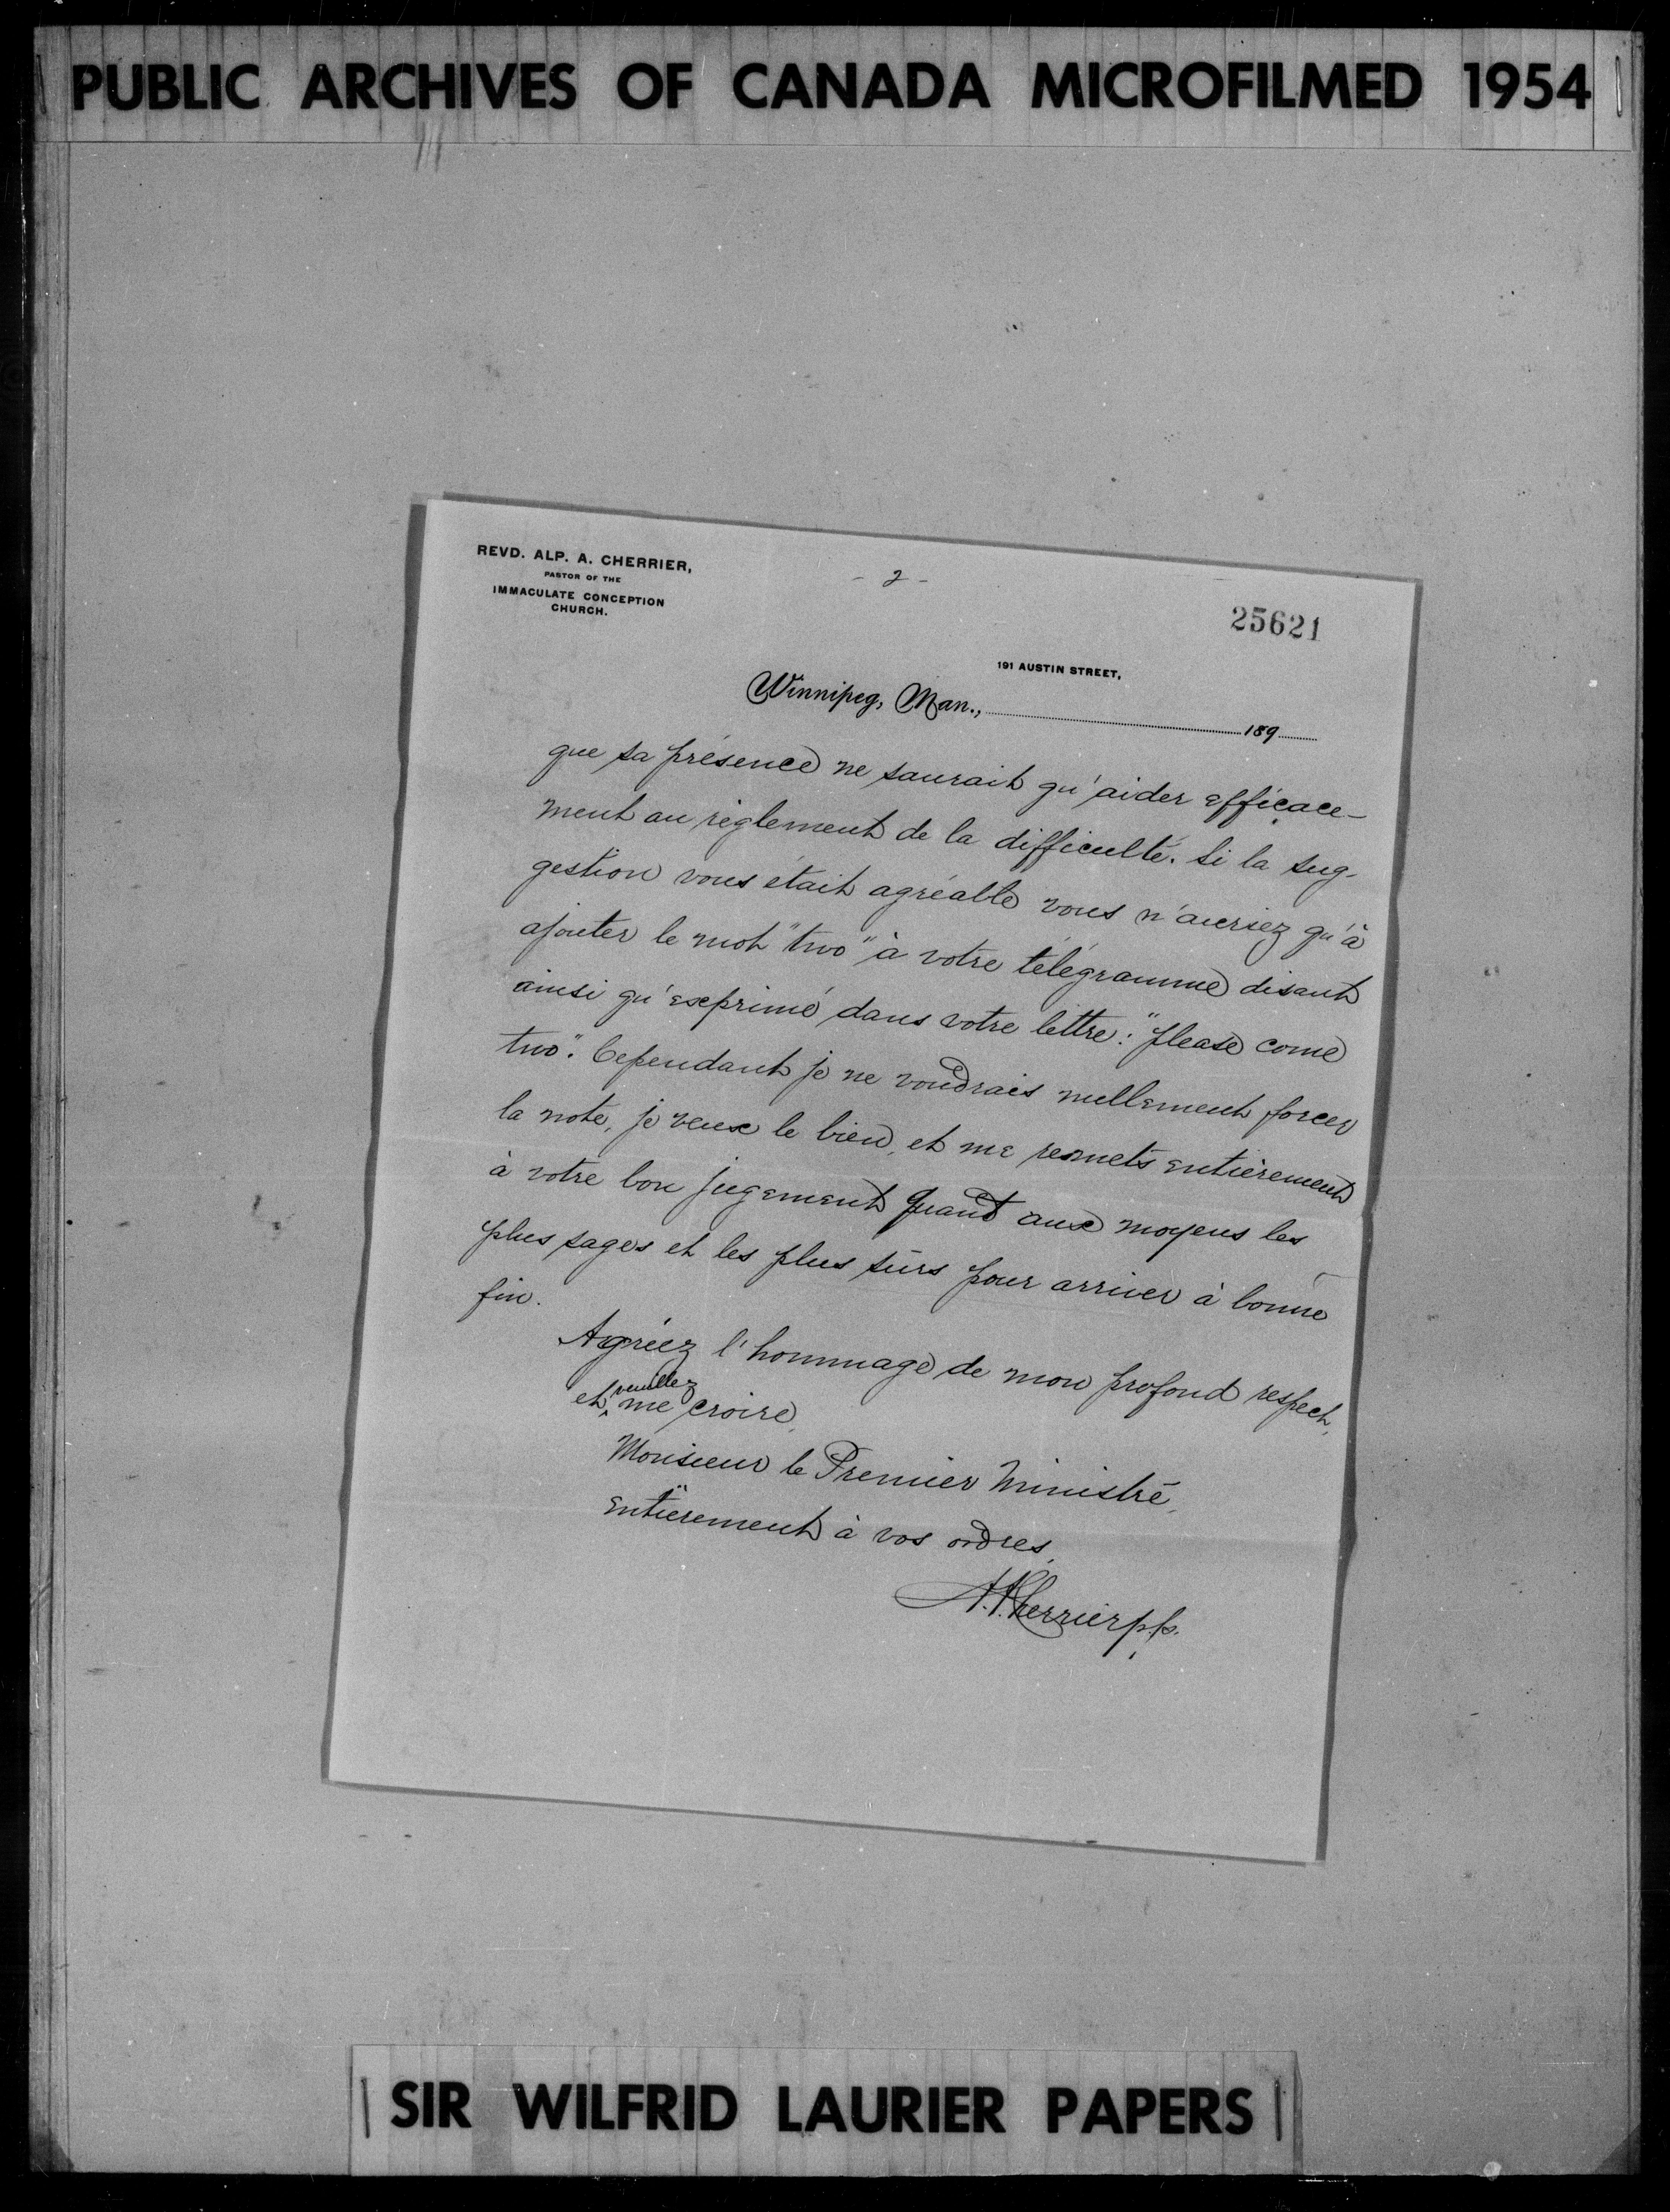 PUBLIC ARCHIVES OF CANADA MICROFILMED 1954
REVD. ALP. A. CHERRIER,
PASTOR OF THE
IMMACULATE CONCEPTION
CHURCH.
- 2 -
25621
191 AUSTIN STREET,
Winnipeg, Man., 189
que sa présence ne saurait qu'aider efficace-
ment au règlement de la difficulté. Si la sug-
gestion vous était agréable vous n'auriez qu'à
ajouter le mot "two" à votre télégramme disant
ainsi qu'exprimé dans votre lettre: "please come
two". Cependant je ne voudrais nullement forcer
la note, je veux le bien, et me remets entièrement
à votre bon jugement quant aux moyens les
plus sages et les plus sûrs pour arriver à bonne
fin.
Agréez l'hommage de mon profond respect,
et veuillez me croire,
Monsieur le Premier Ministre,
entièrement à vos ordres,
A. A. Cherrier p.p.
SIR WILFRID LAURIER PAPERS